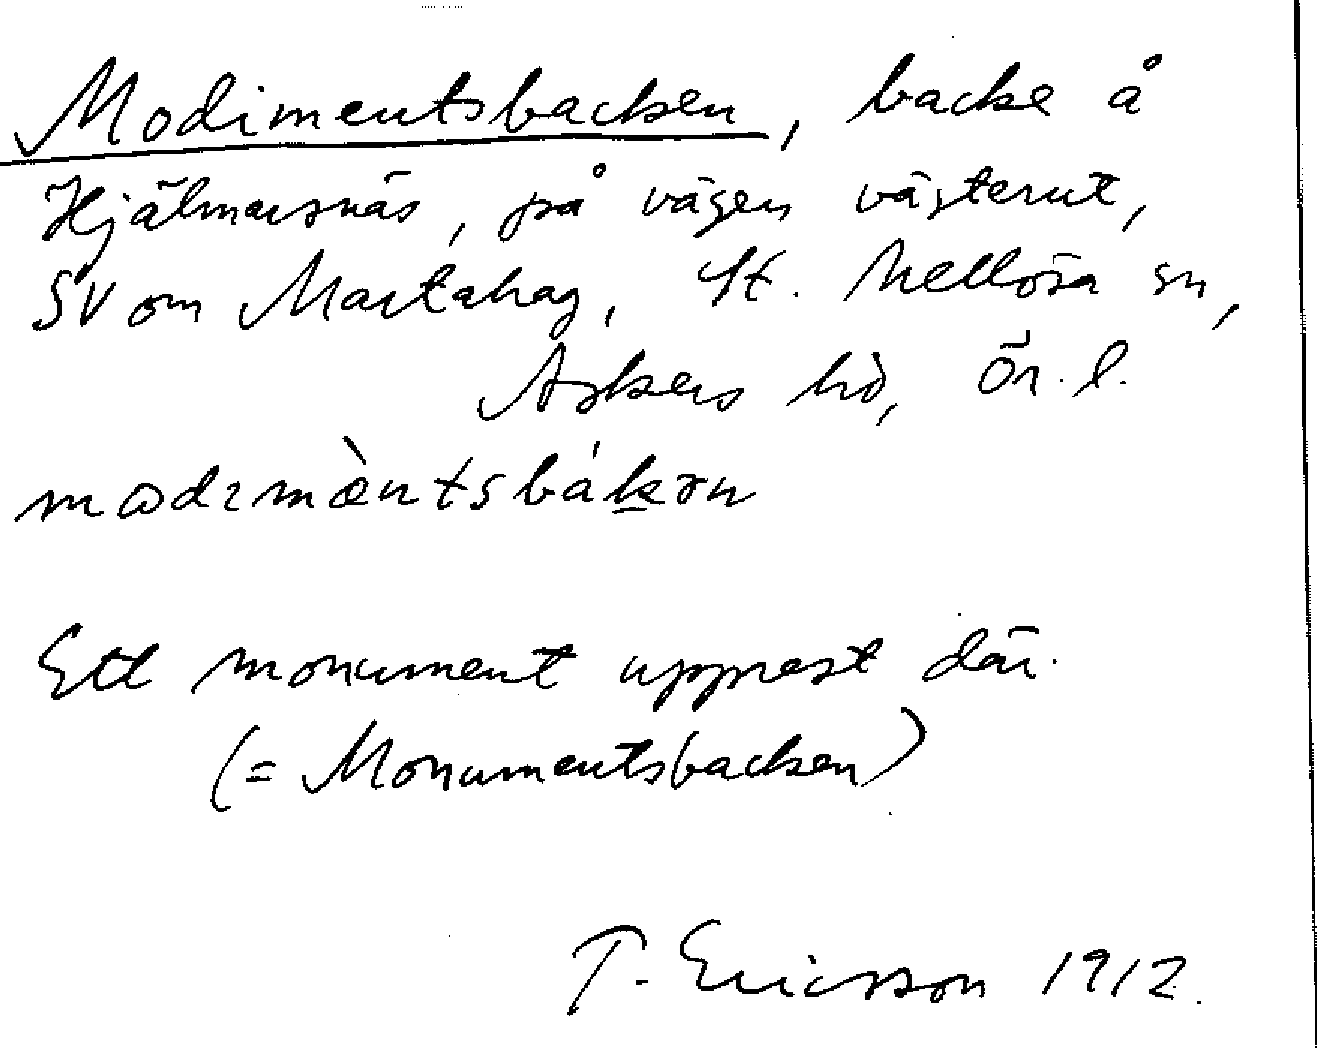 Modimentsbacken, backe å
Hjälmarsnäs, på vägen västerut,
SV om Martahag, St. Mellösa sn,
Askers hd, Ör. l.
modımæ̀ntsbákən
Ett monument upprest där.
(= Monumentsbacken)
T. Ericsson 1912.